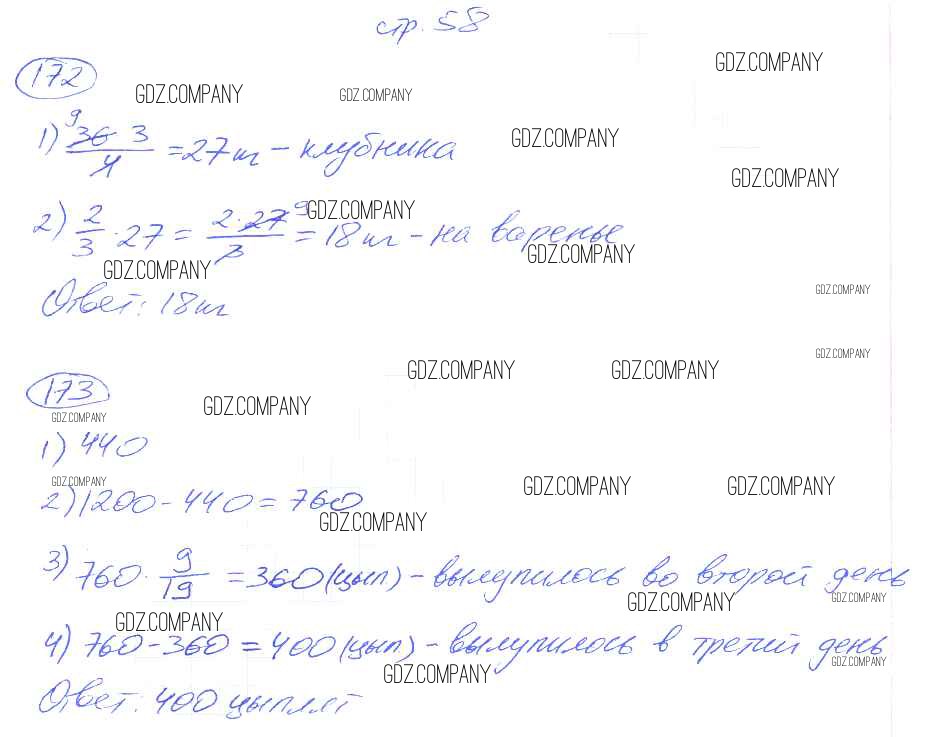 стр. 58
GDZ.COMPANY
172
GDZ.COMPANY GDZ.COMPANY
GDZ.COMPANY
1) 9 36 3 / 4 = 27 кг - клубника
GDZ.COMPANY
2) 2/3 · 27 = 2 · 27 9 / 3 = 18 кг - на варенье
GDZ.COMPANY
GDZ.COMPANY
GDZ.COMPANY
GDZ.COMPANY
Ответ: 18 кг
GDZ.COMPANY
GDZ.COMPANY GDZ.COMPANY
173
GDZ.COMPANY
GDZ.COMPANY
1) 440
GDZ.COMPANY
GDZ.COMPANY GDZ.COMPANY
2) 1200 - 440 = 760
GDZ.COMPANY
3) 760 · 9/19 = 360 (цып) - вылупилось во второй день
GDZ.COMPANY GDZ.COMPANY
GDZ.COMPANY
4) 760 - 360 = 400 (цып) - вылупилось в третий день
GDZ.COMPANY
GDZ.COMPANY
Ответ: 400 цыплят